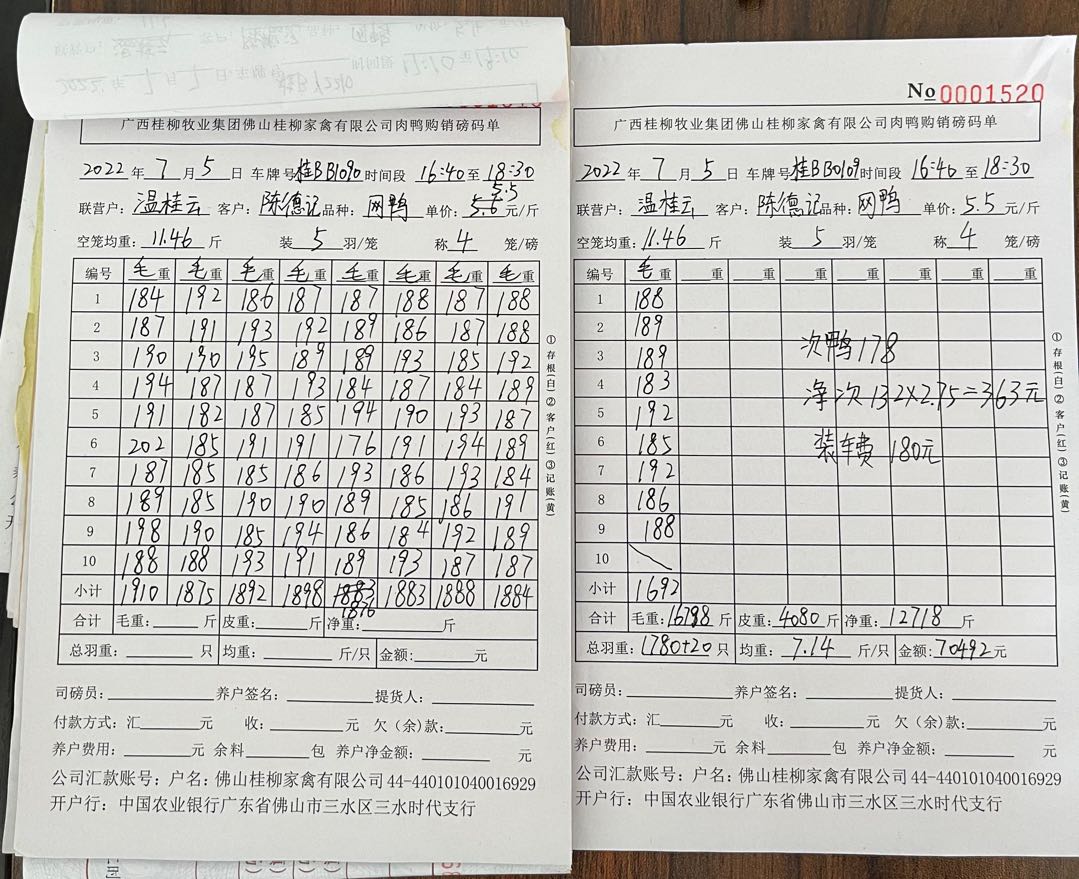 广西桂柳牧业集团佛山桂柳家禽有限公司肉鸭购销磅码单
2022年 7月 5日 车牌号桂BB1090时间段 16:40至18:30
5.5
联营户：温桂云 客户：陈德记品种：网鸭 单价：5.6元/斤
空笼均重：11.46斤 装 5 羽/笼 称 4 笼/磅
编号 毛重 毛重 毛重 毛重 毛重 毛重 毛重 毛重
1 184 192 186 187 187 188 187 188
2 187 191 193 192 189 186 187 188
3 190 190 195 189 189 193 185 192
4 194 187 187 193 184 187 184 189
5 191 182 187 185 194 190 193 187
6 202 185 191 191 176 191 194 189
7 187 185 185 186 193 186 193 184
8 189 185 190 190 189 185 186 191
9 198 190 185 194 186 184 192 189
10 188 188 193 191 189 193 187 187
小计 1910 1875 1892 1898 1883 1883 1888 1884
1876
合计 毛重：斤 皮重：斤 净重：斤
总羽重：只 均重：斤/只 金额：元
司磅员： 养户签名： 提货人：
付款方式：汇 元 收： 元 欠（余）款： 元
养户费用： 元 余料 包 养户净金额： 元
公司汇款账号：户名：佛山桂柳家禽有限公司 44-440101040016929
开户行：中国农业银行广东省佛山市三水区三水时代支行
①存根(白)②客户(红)③记账(黄)
No 0001520
广西桂柳牧业集团佛山桂柳家禽有限公司肉鸭购销磅码单
2022年 7月 5日 车牌号桂BB0109时间段 16:40至18:30
联营户：温桂云 客户：陈德记品种：网鸭 单价：5.5元/斤
空笼均重：11.46斤 装 5 羽/笼 称 4 笼/磅
编号 毛重 重 重 重 重 重 重 重
1 188
2 189
3 189 次鸭178
4 183 净次 132×2.75=363元
5 192
6 185 装车费 180元
7 192
8 186
9 188
10
小计 1692
合计 毛重：16798斤 皮重：4080斤 净重：12718斤
总羽重：1780+20只 均重：7.14斤/只 金额：70492元
司磅员： 养户签名： 提货人：
付款方式：汇 元 收： 元 欠（余）款： 元
养户费用： 元 余料 包 养户净金额： 元
公司汇款账号：户名：佛山桂柳家禽有限公司 44-440101040016929
开户行：中国农业银行广东省佛山市三水区三水时代支行
①存根(白)②客户(红)③记账(黄)